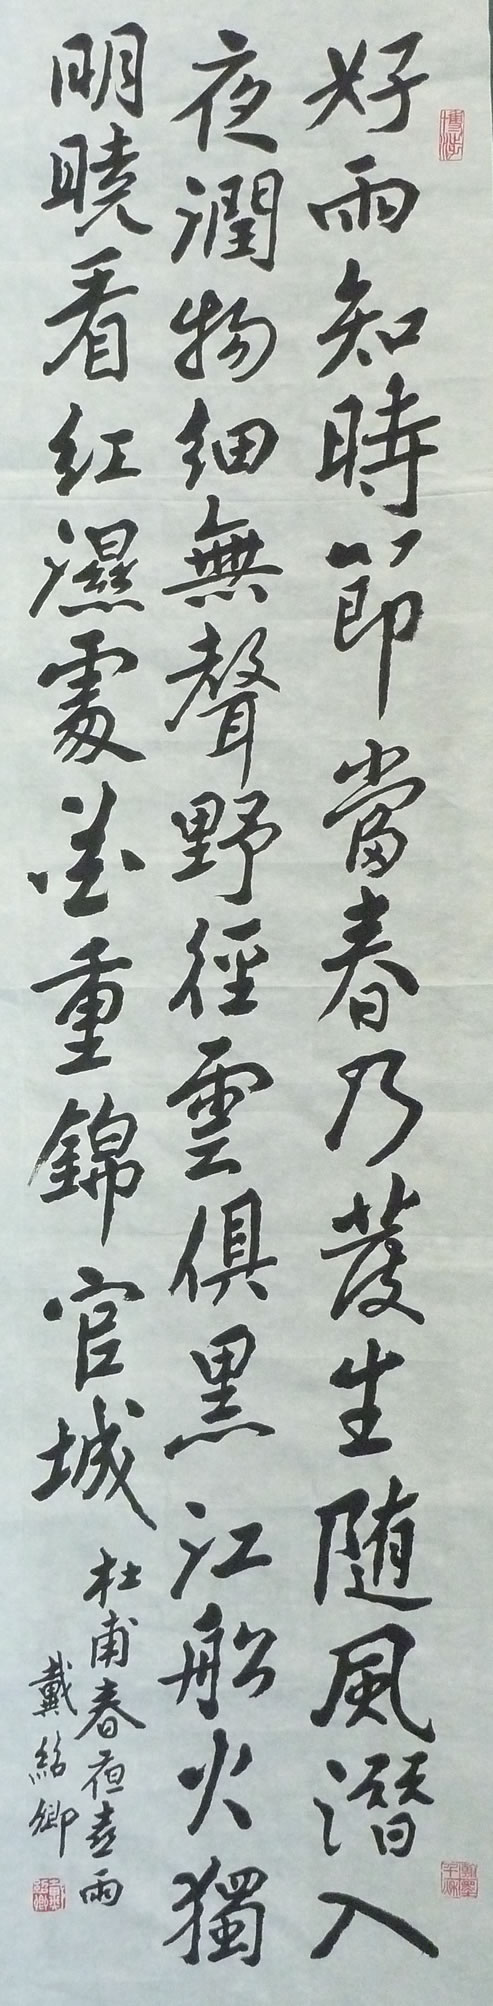 好雨知時節當春乃發生随風潛入
夜潤物細無聲野徑雲俱黑江船火獨
明曉看紅濕處花重錦官城
杜甫春夜喜雨
戴紹卿